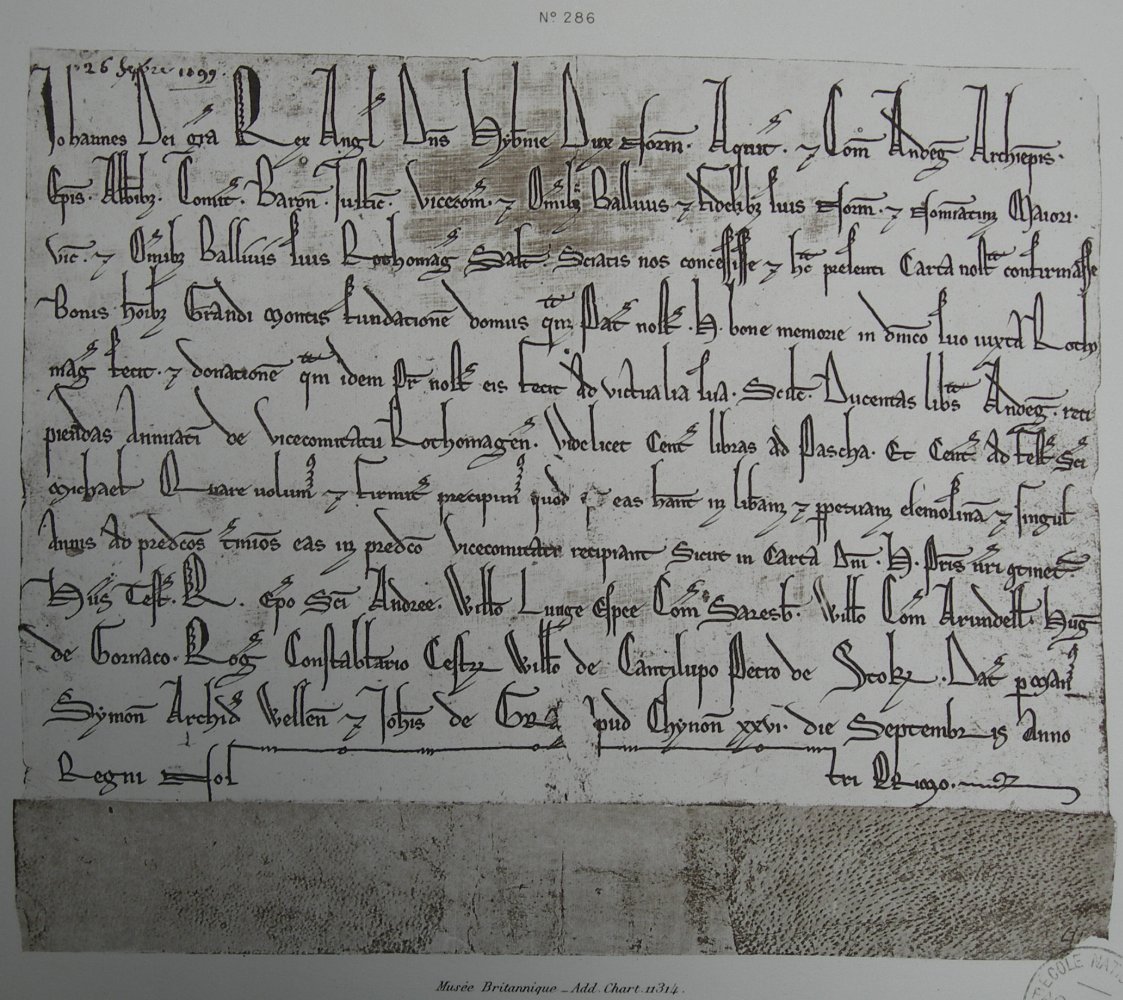 Nº 286
26 Sepbre 1199.
Johannes Dei gra Rex Angl Dns Hybnie Dux Norm. Aquit. ⁊ Com Andeg Archiepis.
Epis. Abbibz. Comit. Baron. Justic. vicecom. ⁊ Omibz Ballivis ⁊ fidelibz suis Norm. ⁊ Nominatim Maiori.
vic. ⁊ Omibz Ballivis suis Rothomag Salt Sciatis nos concessisse ⁊ hc presenti Carta nostr confirmasse
Bonis hoibz Grandi montis fundatione domus qm Pat nost. H. bone memorie in dnico suo iuxta Rotho
mag fecit. ⁊ donatione qm idem Pr nost eis fecit Ad victualia sua. Scilt. Ducentas libs Andeg. reci
piendas Annuati de vicecomitatu Rothomagen. Videlicet Cent libras ad Pascha. Et Cent Ad fest Sci
michael Quare volum ⁊ firmit precipim quod eas hant in libam ⁊ ppetuam elemosina ⁊ singul
Annis Ad predcos tmios eas in predco vicecomitatu recipiant Sicut in Carta Dni. H. Pris nri gtinet
Hiis Test. R. epo Sci Andree. Willo Lunge Espee Com Saresb. Willo Com Arundell. Hug
de Gornaco. Rog Constablario Cestr Willo de Cantilupo Petro de Stok. Dat p man
Symon Archid Wellen ⁊ Johis de Gra Apud Chynon xxvi. die Septembris Anno
Regni Nos tri Primo.
Musée Britannique _ Add. Chart. 11314.
ECOLE NAT